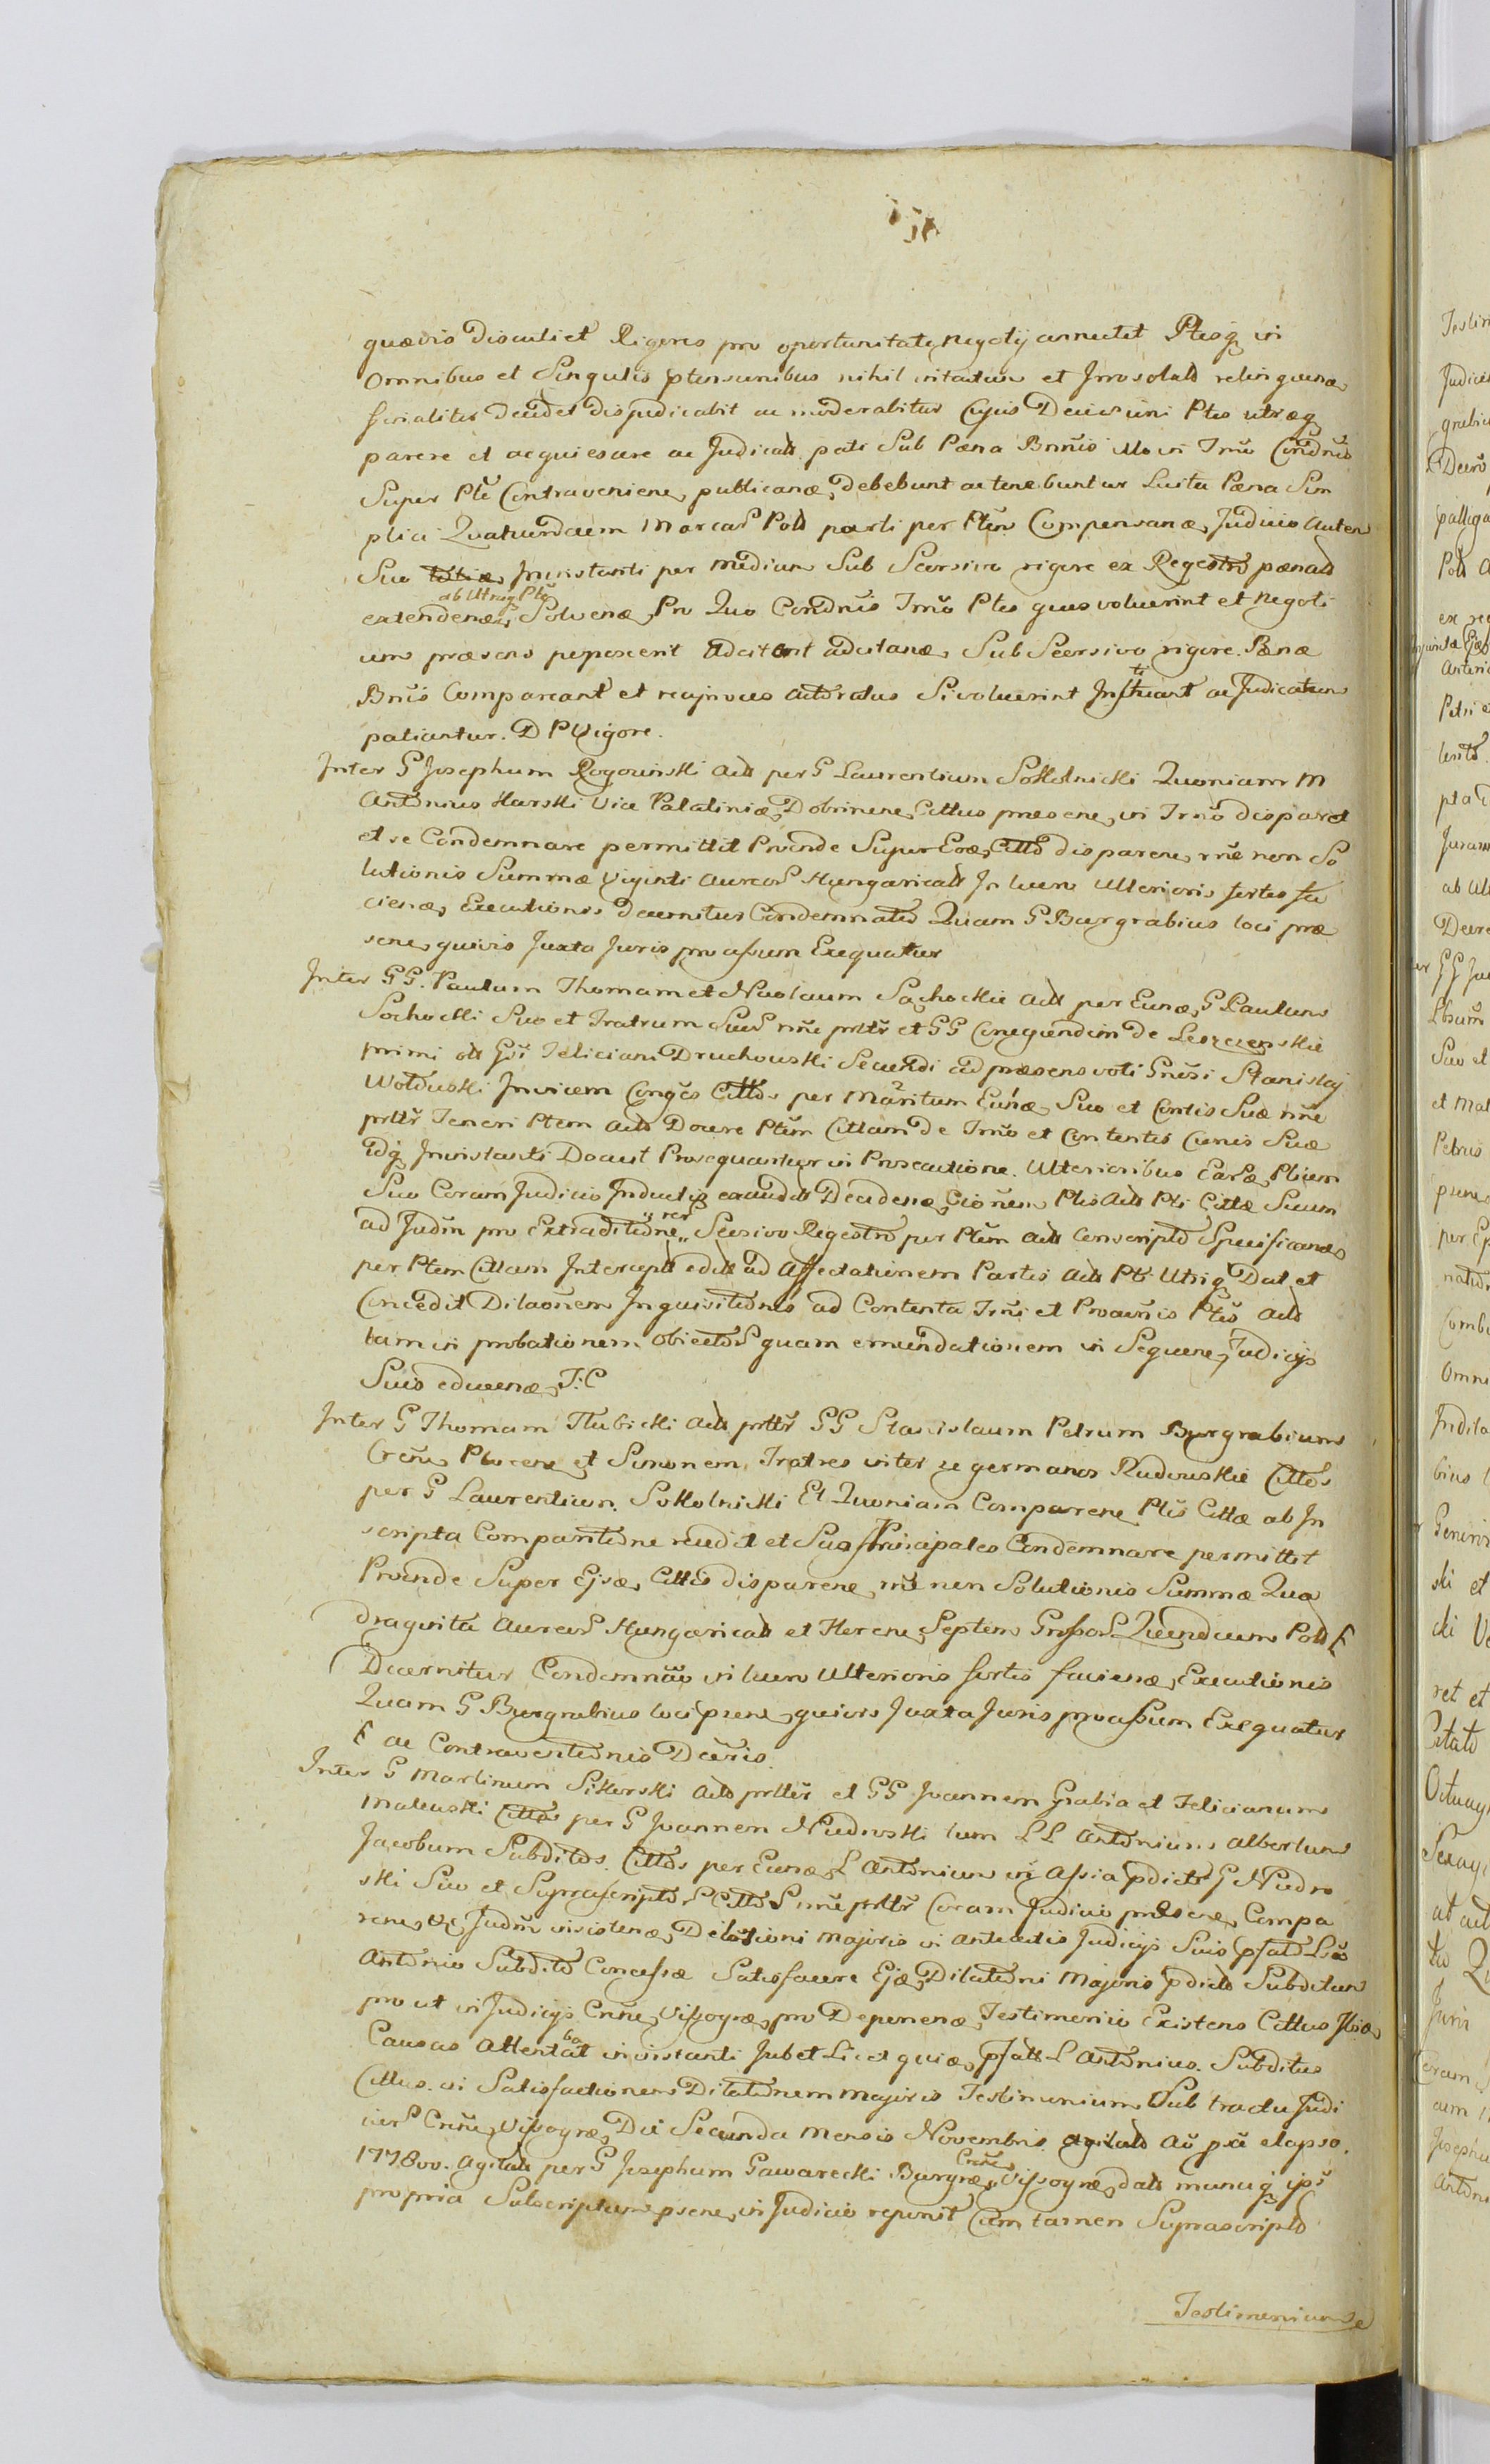 quævis Discutiet Rigores pro oportunitate Negotij annectet Ptesq in
Omnibus et Singulis ptensionibus nihil intactum et Irresolut relinquenæ
finaliter decidet disjudicabit ac moderabitur Cujus Decisioni Ptes utræq
parere et acquiescere ac Judicat pati Sub Pæna Bannis illico in Trno Condnis
Super Pte Contravenien publicanæ, debebunt ac tenebuntur Luita Pæna Sim
plici Quatuordecim Marcar Poll parti per Ptem Compensanæ, Judicio autem
Suo Invistanti per medium Sub Scorsivo rigore ex Regestro pænali
ab Utraq Pte
extendenæ, Solvenæ, Pro Quo Condnis Trno Ptes quas voluerint et Negoti
um præsens peposcerit Adcitent adcitanæ, Sub Scorsivo rigore. Pænæ
Bnis Compareant et reciprocas actoratus Si voluerint Instituant ac Judicatum
patiantur. D P Vigore.
Inter G Josephum Rogowski Act per G Laurentium Sokolnicki Quoniam M
Antonius Karski Vice Palatiniæ, Dobrinene, Cittus præsene, in Trno disparet
et se Condemnare permittit Proinde Super Eoæ, Citto disparene, rne non So
lutionis Summæ Viginti Aureor Hungarical In luen Ulterioris sertes fa
cienæ, Executionis Decernitur Condemnatio Quam G Burgrabius loci præ
sene, quivis Juxta Juris processum Exequatur
Inter GG. Paulum Thomam et Nicolaum Sochockie Act per Eunæ, G Paulum
Sochocki Suo et Fratrum Suor nne prttr et GG Cunegundem de Leszczenskie
primi olt Gsi Feliciani Druchowski Secundi ad præsens voti Gnrsi Stanislaj
Wolowski Invicem Congs Cittos per Maritum Eunæ, Suo et Contis Suæ nne
prttr Teneri Ptem Act Docere Ptem Cittam de Trno et Contentis Cionis Suæ
Idq Invistanti Docuit Prosequantur in Prosecutione. Ulterioribus Earæ, Ptium
Suo Coram Judicio Inductis exaudit Decidenæ, Cionem Ptis Act Pti Cittæ Suum
ad Judm pro Extraditione Scorsivo Regestro per Ptem Act Conscripto Specificanæ
per Ptem Cittam Intercept edit ad Affectationem Partis Act Pti Utriq Dat et
Concedit Dilaonem Inquisitionis ad Contenta Trni et Procincis Ptis Act
tam in probationem Obiector quam emundationem in Sequene, Judicijs
Suis educenæ, T:C
Inter G Thomam Tlubicki Act prttr GG Stanislaum Petrum Burgrabium
Crene Plocene et Simonem, Fratres inter se germanos Rudowskie Cittos
per G Laurentium Sokolnicki Et Quoniam Comparene Ptis Cittæ ab In
scripta Comparitione recedit et Suos Principales Condemnare permittit
Proinde Super Ejsæ, Cittis disparene, rne non Solutionis Summæ Qua
draginta Aureor Hungarical et Florene, Septem Grossor Quindecim Poll F
Decernitur Condemnao in luen Ulterioris sertis facienæ, Executionis
Quam G Burgrabius loci psene, quivis Juxta Juris processum Exequatur
F ac Contraventionis Decris.
Inter G Martinum Sikorski Act prttr et GG Joannem Grabia et Felicianum
Malewski Cittos per G Joannem Niedroski tum LL Antonium Albertum
Jacobum Subditos. Cittos per Eunæ, L Antonium in Assia pdicti G Niedro
ski Suo et Suprascriptor Cittor nne prttr Coram Judicio præsene, Compa
rene, Judm insistenæ, Dilationi Majoris in antecedis Judicijs Suis psato Lso
Antonio Subdito Concessæ Satisfacere Ejæ, Dilationi Majoris pdict Subditum
pro ut in Judicijs Crene, Vissogræ, pro Deponenæ, Testimonio Existens Cittus
Causas Attentabat invistanti Jubet Licet quiæ, psatt L Antonius. Subditus
Cittus. in Satisfactionem Dilationem Majoris Testimonium Sub tractu Judi
cior Crene, Vissogræ, Die Secunda Mensis Novembris agitat Ao pxe elapso.
1778vo. Agitat per G Josephum Gawarecki Burgræ, Crene, Vissogræ, dat manuq ips
propria Subscriptum psene, in Judicio reponit Cum tamen Suprascripto
Testimonium